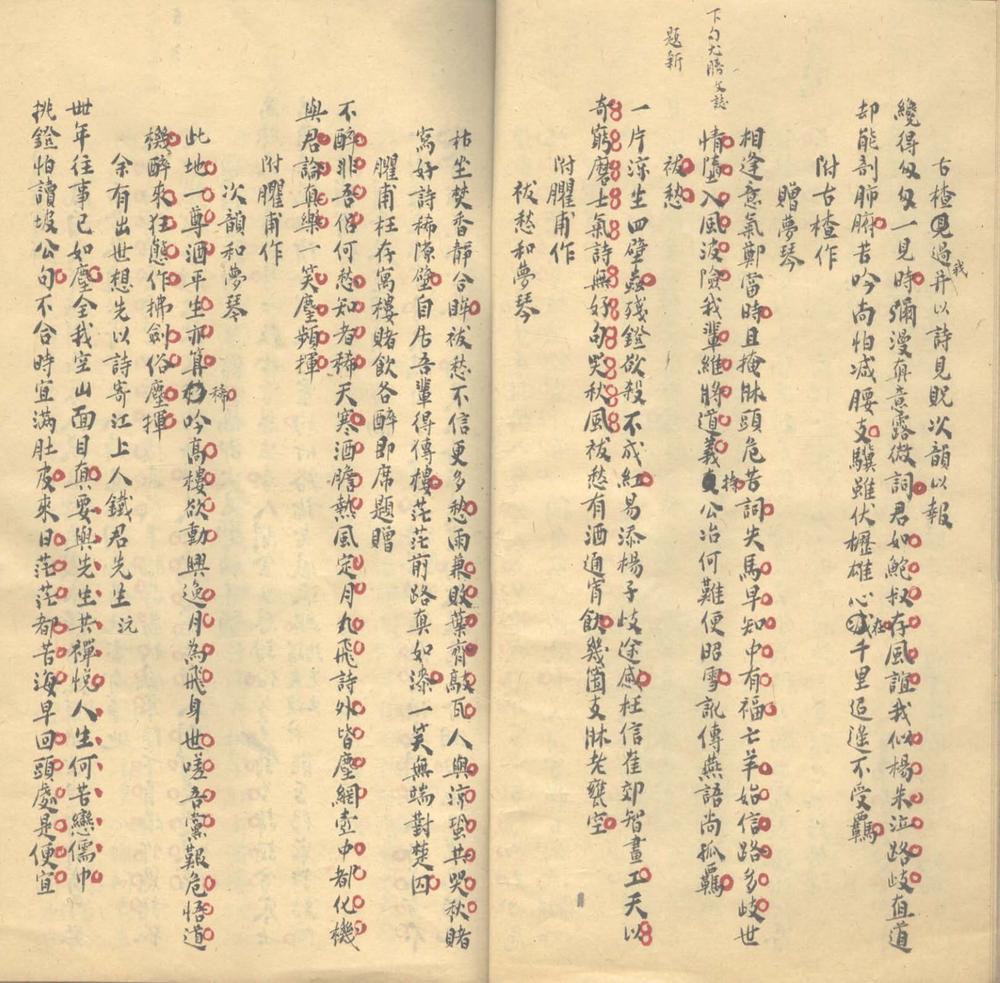 古槎見過并以詩見貺次韻以報
我
纔得匆匆一見時彌漫真意露微詞君如鮑叔存風誼我似楊朱泣路歧直道
却能剖肺腑苦吟尚怕減腰支驥雖伏櫪雄心在千里追逐不受羈
附古槎作
贈夢琴
相逢意氣鄭當時且掩牀頭危苦詞失馬早知中有福亡羊始信路多歧世
下句尤勝
情墮入風波險我輩維將道義持公冶何難便昭雪訛傳燕語尚孤羈
題新
祓愁
一片涼生四壁蟲殘鐙欲殺不成紅易添楊子歧途感枉信崔郊智畫工天以
奇窮磨士氣詩無好句哭秋風祓愁有酒通宵飲幾箇支牀老甕空
附臞甫作
祓愁和夢琴
枯坐焚香靜合眸祓愁不信更多愁雨兼敗葉齊敲瓦人與涼蛩共哭秋賭
寫好詩稀隙壁自居吾輩得傳樓茫茫前路真如漆一笑無端對楚囚
臞甫枉存寓樓賭飲各醉即席題贈
不醉非吾侶何愁知者稀天寒酒膽熱風定月丸飛詩外皆塵網壺中都化機
與君論真樂一笑塵頻揮
附臞甫作
次韻和夢琴
此地一尊酒平生亦算稀吟高樓欲動興逸月為飛身世嗟吾黨艱危悟道
機醉來狂態作拂劍俗塵揮
余有出世想先以詩寄江上人鐵君先生沅
卌年往事已如塵全我空山面目真要與先生共禪悅人生何苦戀儒巾
挑鐙怕讀坡公句不合時宜滿肚皮來日茫茫都苦海早回頭處是便宜